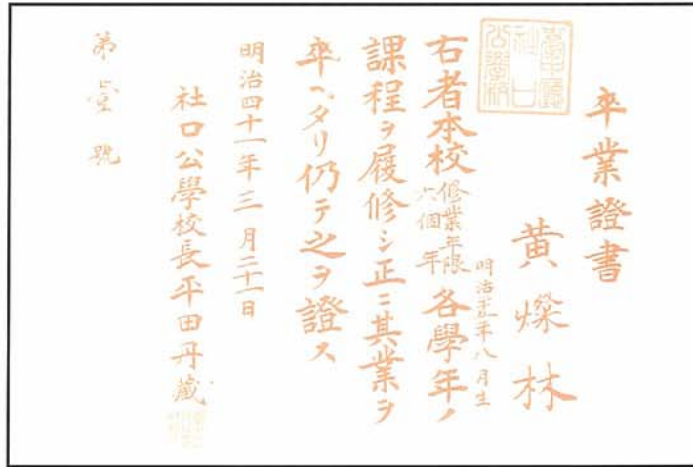 卒業證書
臺中廳
社口
公學校
黄燦林
明治廿五年八月生
右者本校修業年限六個年各學年ノ
課程ヲ履修シ正ニ其業ヲ
卒ヘタリ仍テ之ヲ證ス
明治四十一年三月二十一日
社口公學校長平田丹藏
第壹號